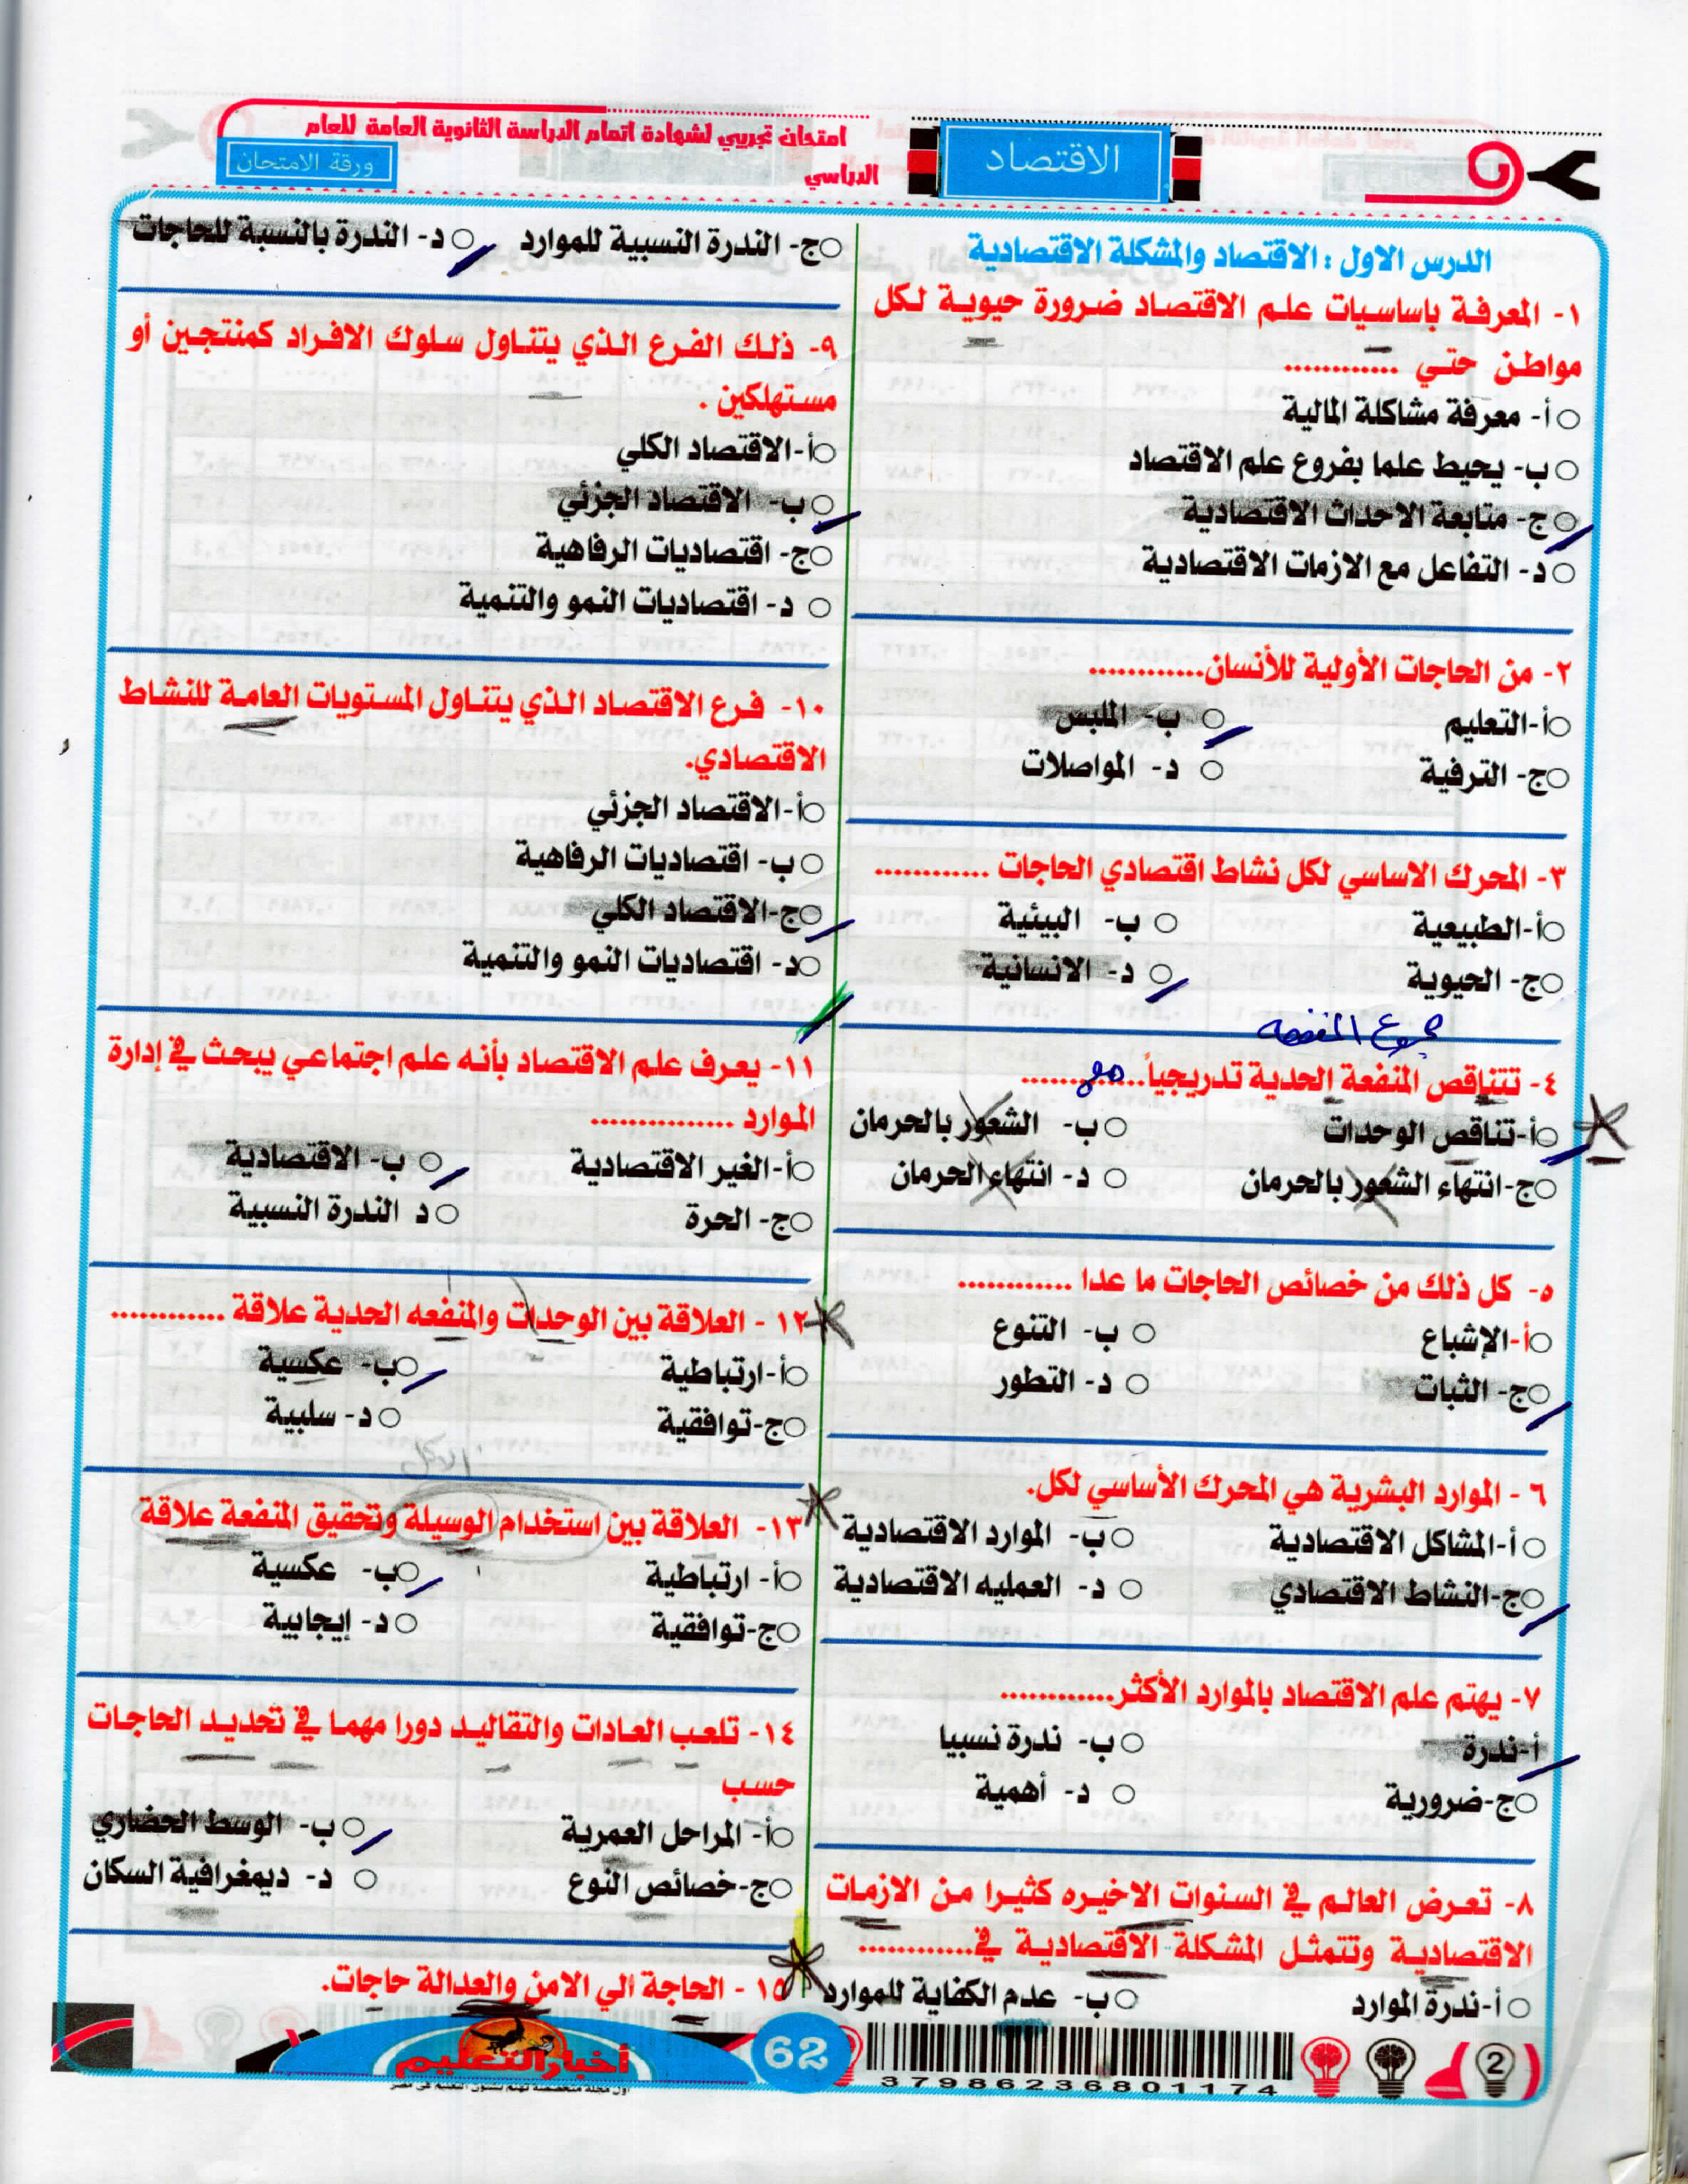 امتحان تجريبي لشهادة اتمام الدراسة الثانوية العامة للعام
الدراسي
الاقتصاد
ورقة الامتحان
الدرس الاول : الاقتصاد والمشكلة الاقتصادية
١- المعرفة باساسيات علم الاقتصاد ضرورة حيوية لكل
مواطن حتي ............
أ- معرفة مشاكلة المالية
ب- يحيط علما بفروع علم الاقتصاد
ج- متابعة الاحداث الاقتصادية
د- التفاعل مع الازمات الاقتصادية
٢- من الحاجات الأولية للأنسان............
أ-التعليم ب- الملبس
ج- الترفية د- المواصلات
٣- المحرك الاساسي لكل نشاط اقتصادي الحاجات ............
أ-الطبيعية ب- البيئية
ج- الحيوية د- الانسانية
مجموع المنفعه
٤- تتناقص المنفعة الحدية تدريجياً............
مع
أ-تناقص الوحدات ب- الشعور بالحرمان
ج-انتهاء الشعور بالحرمان د- انتهاء الحرمان
٥- كل ذلك من خصائص الحاجات ما عدا ............
أ-الإشباع ب- التنوع
ج- الثبات د- التطور
٦ - الموارد البشرية هي المحرك الأساسي لكل.
أ-المشاكل الاقتصادية ب- الموارد الاقتصادية
ج-النشاط الاقتصادي د- العمليه الاقتصادية
٧- يهتم علم الاقتصاد بالموارد الأكثر............
أ-ندرة ب- ندرة نسبيا
ج-ضرورية د- أهمية
٨- تعرض العالم في السنوات الاخيره كثيرا من الازمات
الاقتصادية وتتمثل المشكلة الاقتصادية في............
أ-ندرة الموارد ب- عدم الكفاية للموارد
ج- الندرة النسبية للموارد د- الندرة بالنسبة للحاجات
٩- ذلك الفرع الذي يتناول سلوك الافراد كمنتجين أو
مستهلكين .
أ-الاقتصاد الكلي
ب- الاقتصاد الجزئي
ج- اقتصاديات الرفاهية
د- اقتصاديات النمو والتنمية
١٠- فرع الاقتصاد الذي يتناول المستويات العامة للنشاط
الاقتصادي.
أ-الاقتصاد الجزئي
ب- اقتصاديات الرفاهية
ج-الاقتصاد الكلي
د- اقتصاديات النمو والتنمية
١١- يعرف علم الاقتصاد بأنه علم اجتماعي يبحث في إدارة
الموارد ...............
أ-الغير الاقتصادية ب- الاقتصادية
ج- الحرة د الندرة النسبية
١٢ - العلاقة بين الوحدات والمنفعه الحدية علاقة ............
أ-ارتباطية ب- عكسية
ج-توافقية د- سلبية
١٣- العلاقة بين استخدام الوسيلة وتحقيق المنفعة علاقة
أ- ارتباطية ب- عكسية
ج-توافقية د- إيجابية
١٤- تلعب العادات والتقاليد دورا مهما في تحديد الحاجات
حسب
أ- المراحل العمرية ب- الوسط الحضاري
ج-خصائص النوع د- ديمغرافية السكان
١٥ - الحاجة الي الامن والعدالة حاجات.
أخبار التعليم
62
37986236801174
2